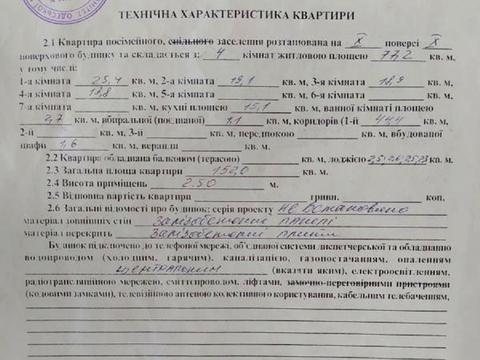 ТЕХНІЧНА ХАРАКТЕРИСТИКА КВАРТИРИ
2.1 Квартира посімейного, спільного заселення розташована на X поверсі X
поверхового будинку та складається з: 4 кімнат житловою площею 77,2 кв. м,
у тому числі:
1-а кімната 25,4 кв. м, 2-а кімната 19,1 кв. м, 3-я кімната 18,9 кв. м,
4-а кімната 13,8 кв. м, 5-а кімната кв. м, 6-а кімната кв. м,
7-а кімната кв. м, кухні площею 15,1 кв. м, ванної кімнати площею
2,7 кв. м, вбиральної (поєднаної) 1,1 кв. м, коридорів (1-й 44,4 кв. м,
2-й кв. м, 3-й кв. м, передпокою кв. м, вбудованої
шафи 1,6 кв. м, веранди кв. м.
2.2 Квартира обладнана балконом (терасою) кв. м, лоджією кв. м
2.3 Загальна площа квартири 152,0 кв. м.
2.4 Висота приміщень 2.50 м.
2.5 Відновна вартість квартири гривн. коп.
2.6 Загальні відомості про будинок: серія проекту не встановлено
матеріал зовнішніх стін залізобетонні панелі
матеріал перекрить залізобетонні
Будинок підключено до телефонної мережі, об'єднаної системи диспетчерської та обладнано
водопроводом (холодним, гарячим), каналізацією, газопостачанням, опаленням
центральним (вказати яким), електроосвітленням,
радіотрансляційною мережею, сміттєпроводом, ліфтами, замочно-переговорними пристроями
(кодовими замками), телевізійною антеною колективного користування, кабельним телебаченням,